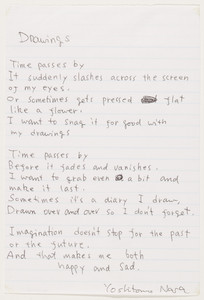 Drawings
Time passes by
It suddenly slashes across the screen
of my eyes.
Or sometimes gets pressed flat
like a flower.
I want to snag it for good with
my drawings
Time passes by
Before it fades and vanishes.
I want to grab even a bit and
make it last.
Sometimes it's a diary I draw,
Drawn over and over so I don't forget.
Imagination doesn't stop for the past
or the future.
And that makes me both
happy and sad.
Yoshitomo Nara